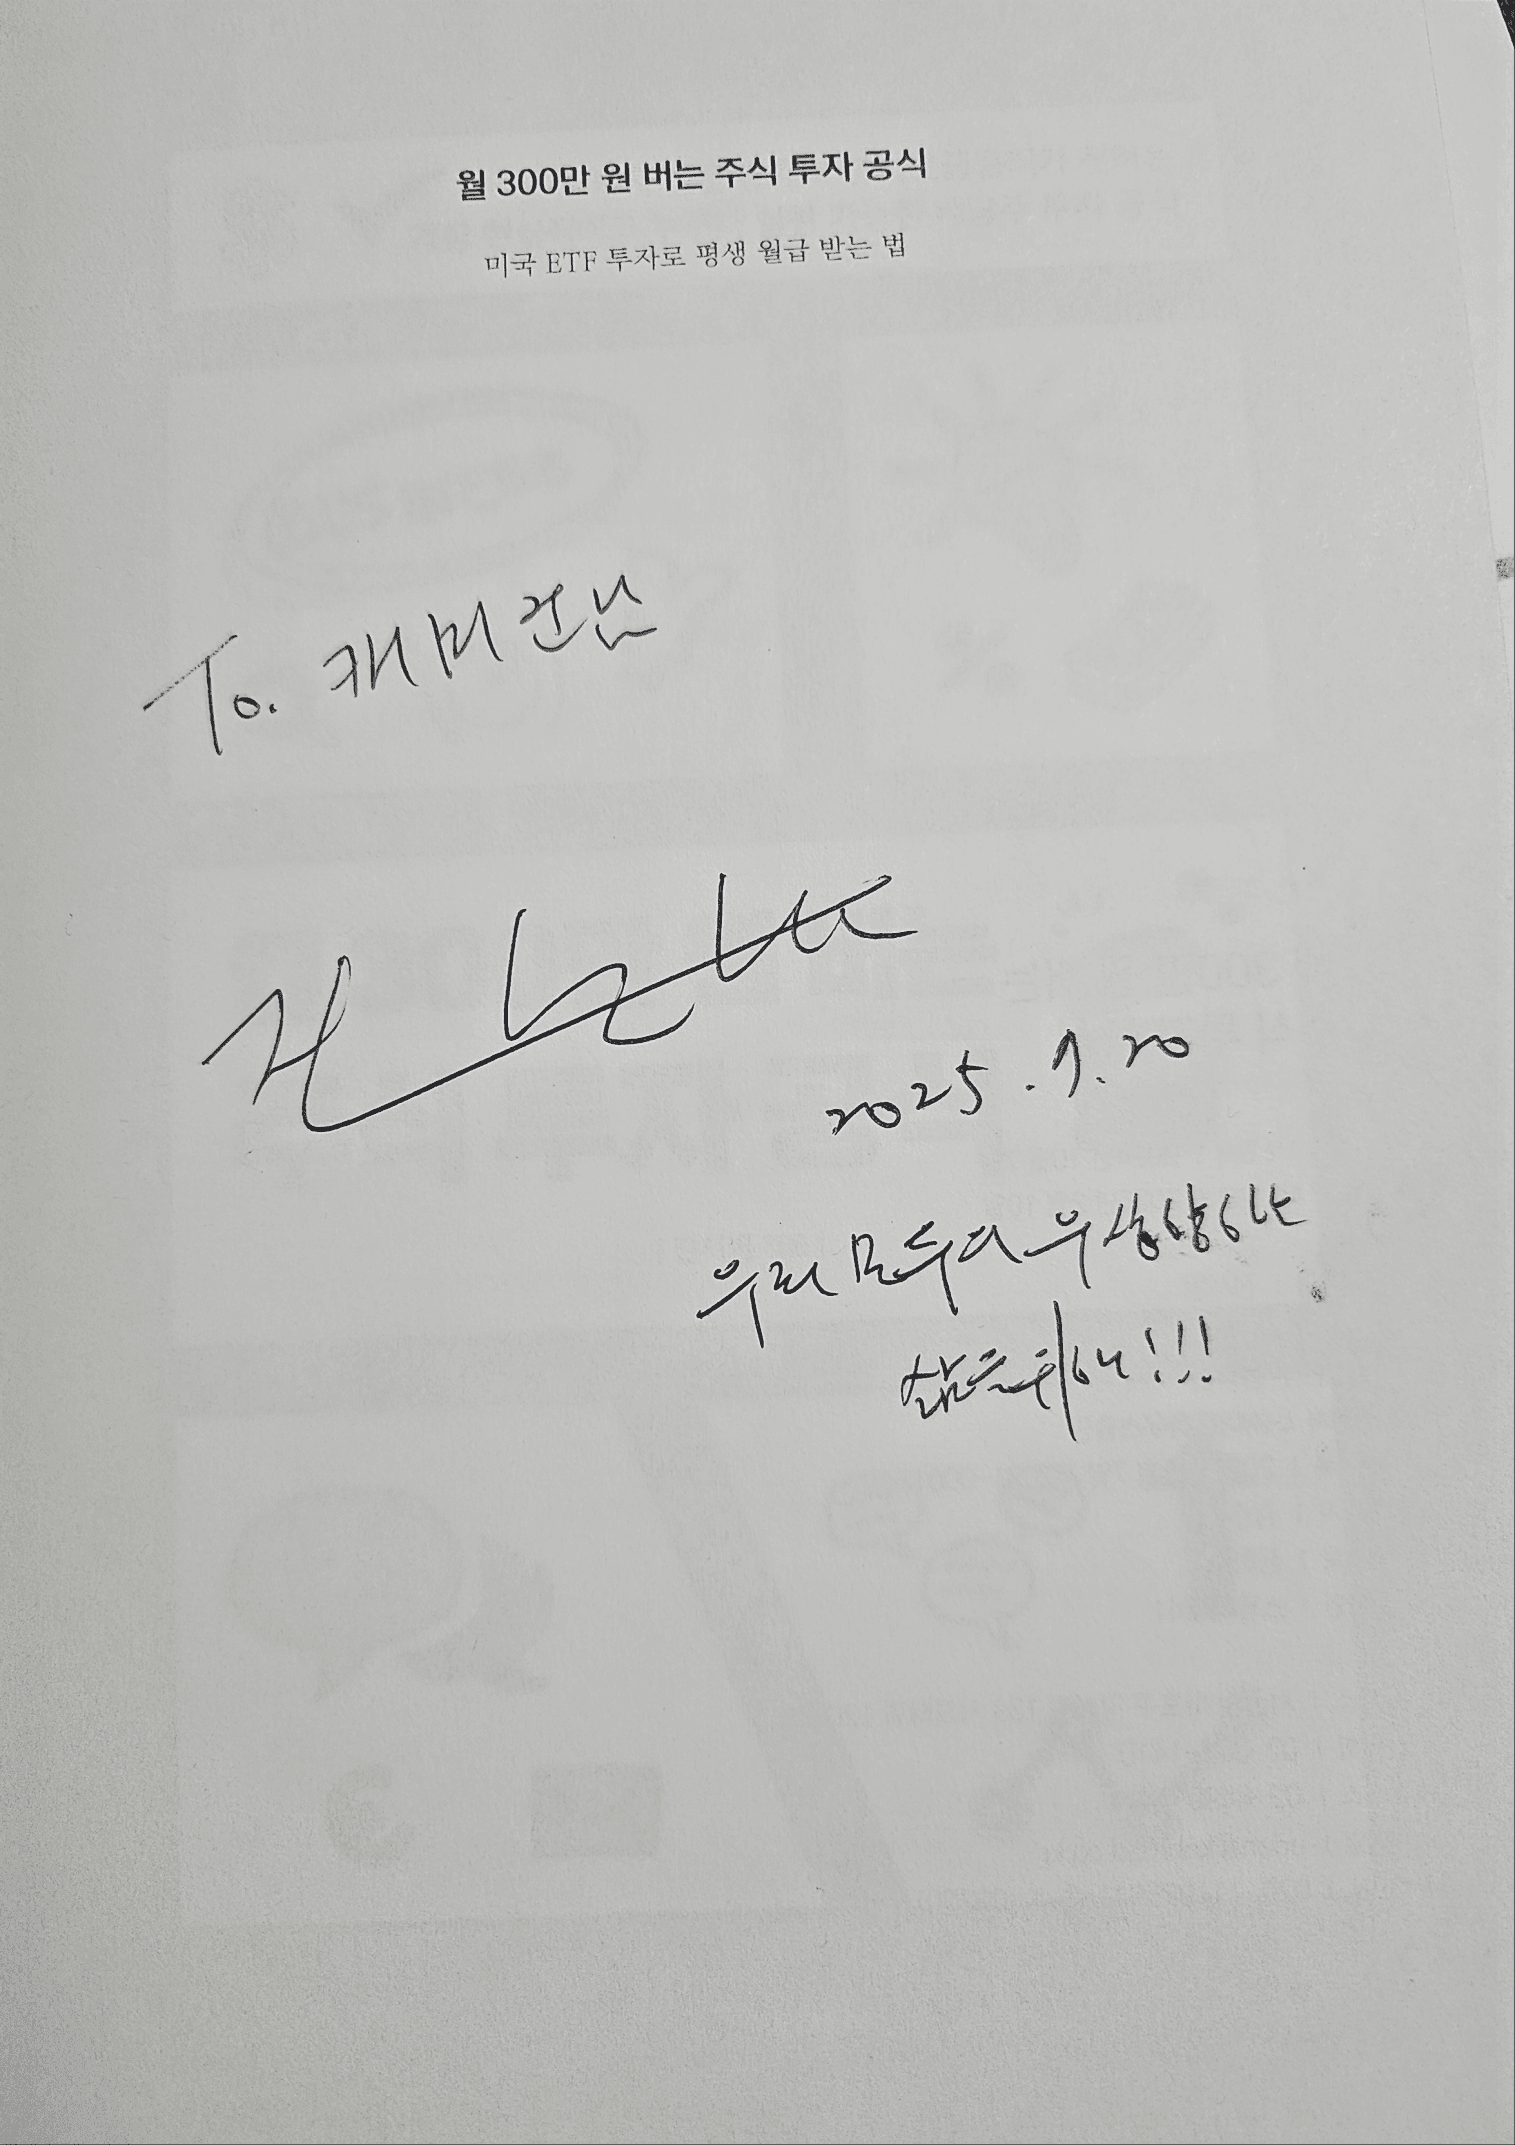 월 300만 원 버는 주식 투자 공식
미국 ETF 투자로 평생 월급 받는 법
To. 캐미건님
2025. 9. 20
우리 모두의 우상향하는
삶을 위해!!!